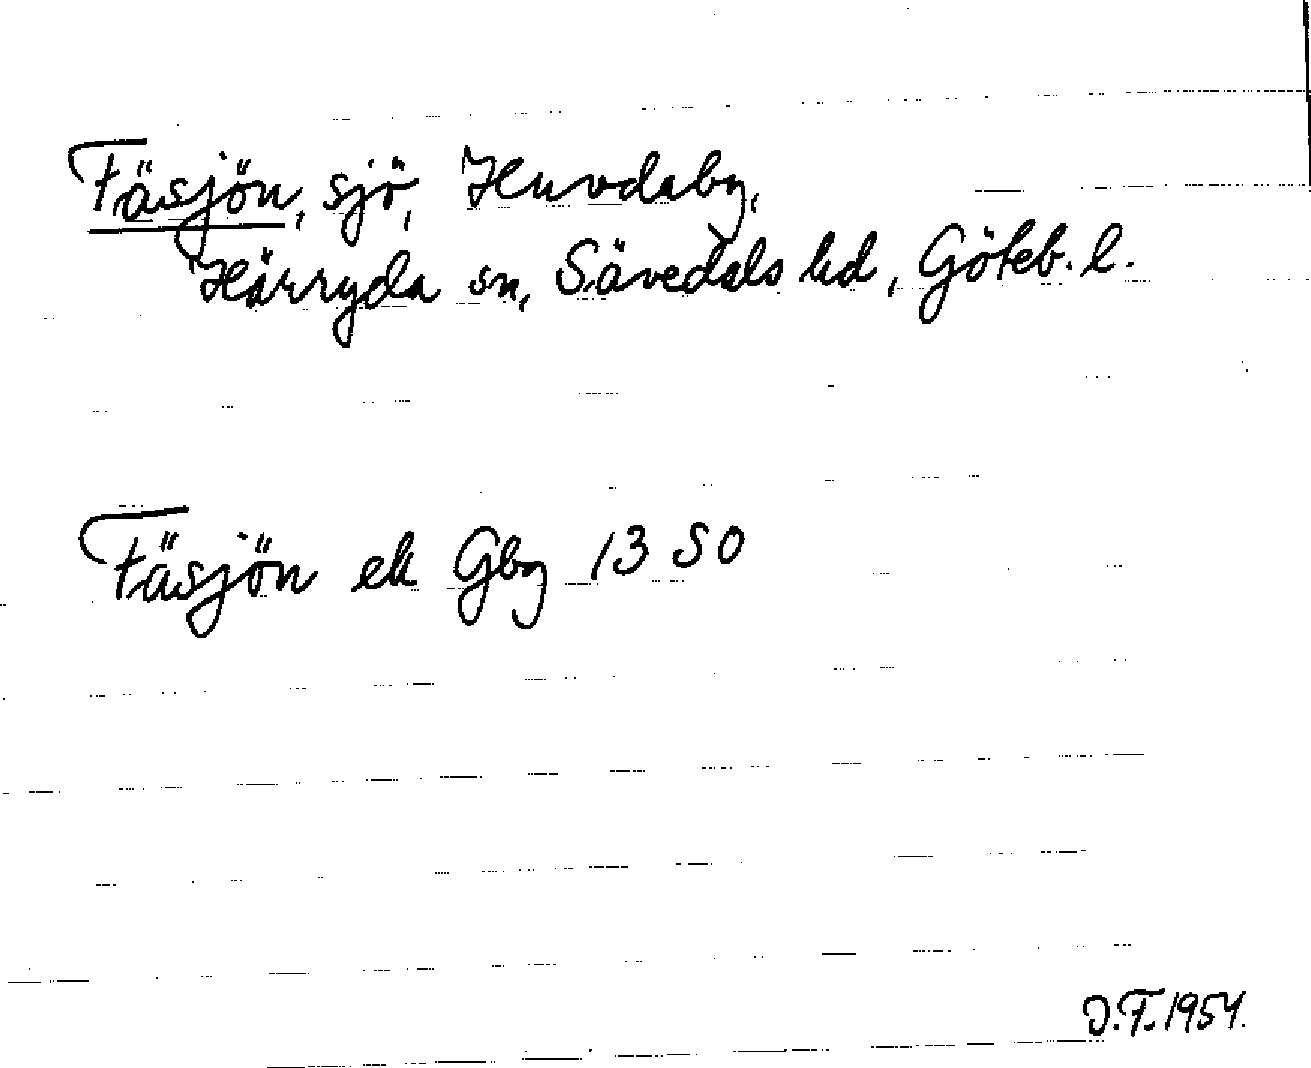 Fäsjön, sjö, Huvdaby,
Härryda sn, Sävedals hd, Göteb. l.
Fäsjön ek Gbg 13 SO
O.F. 1954.